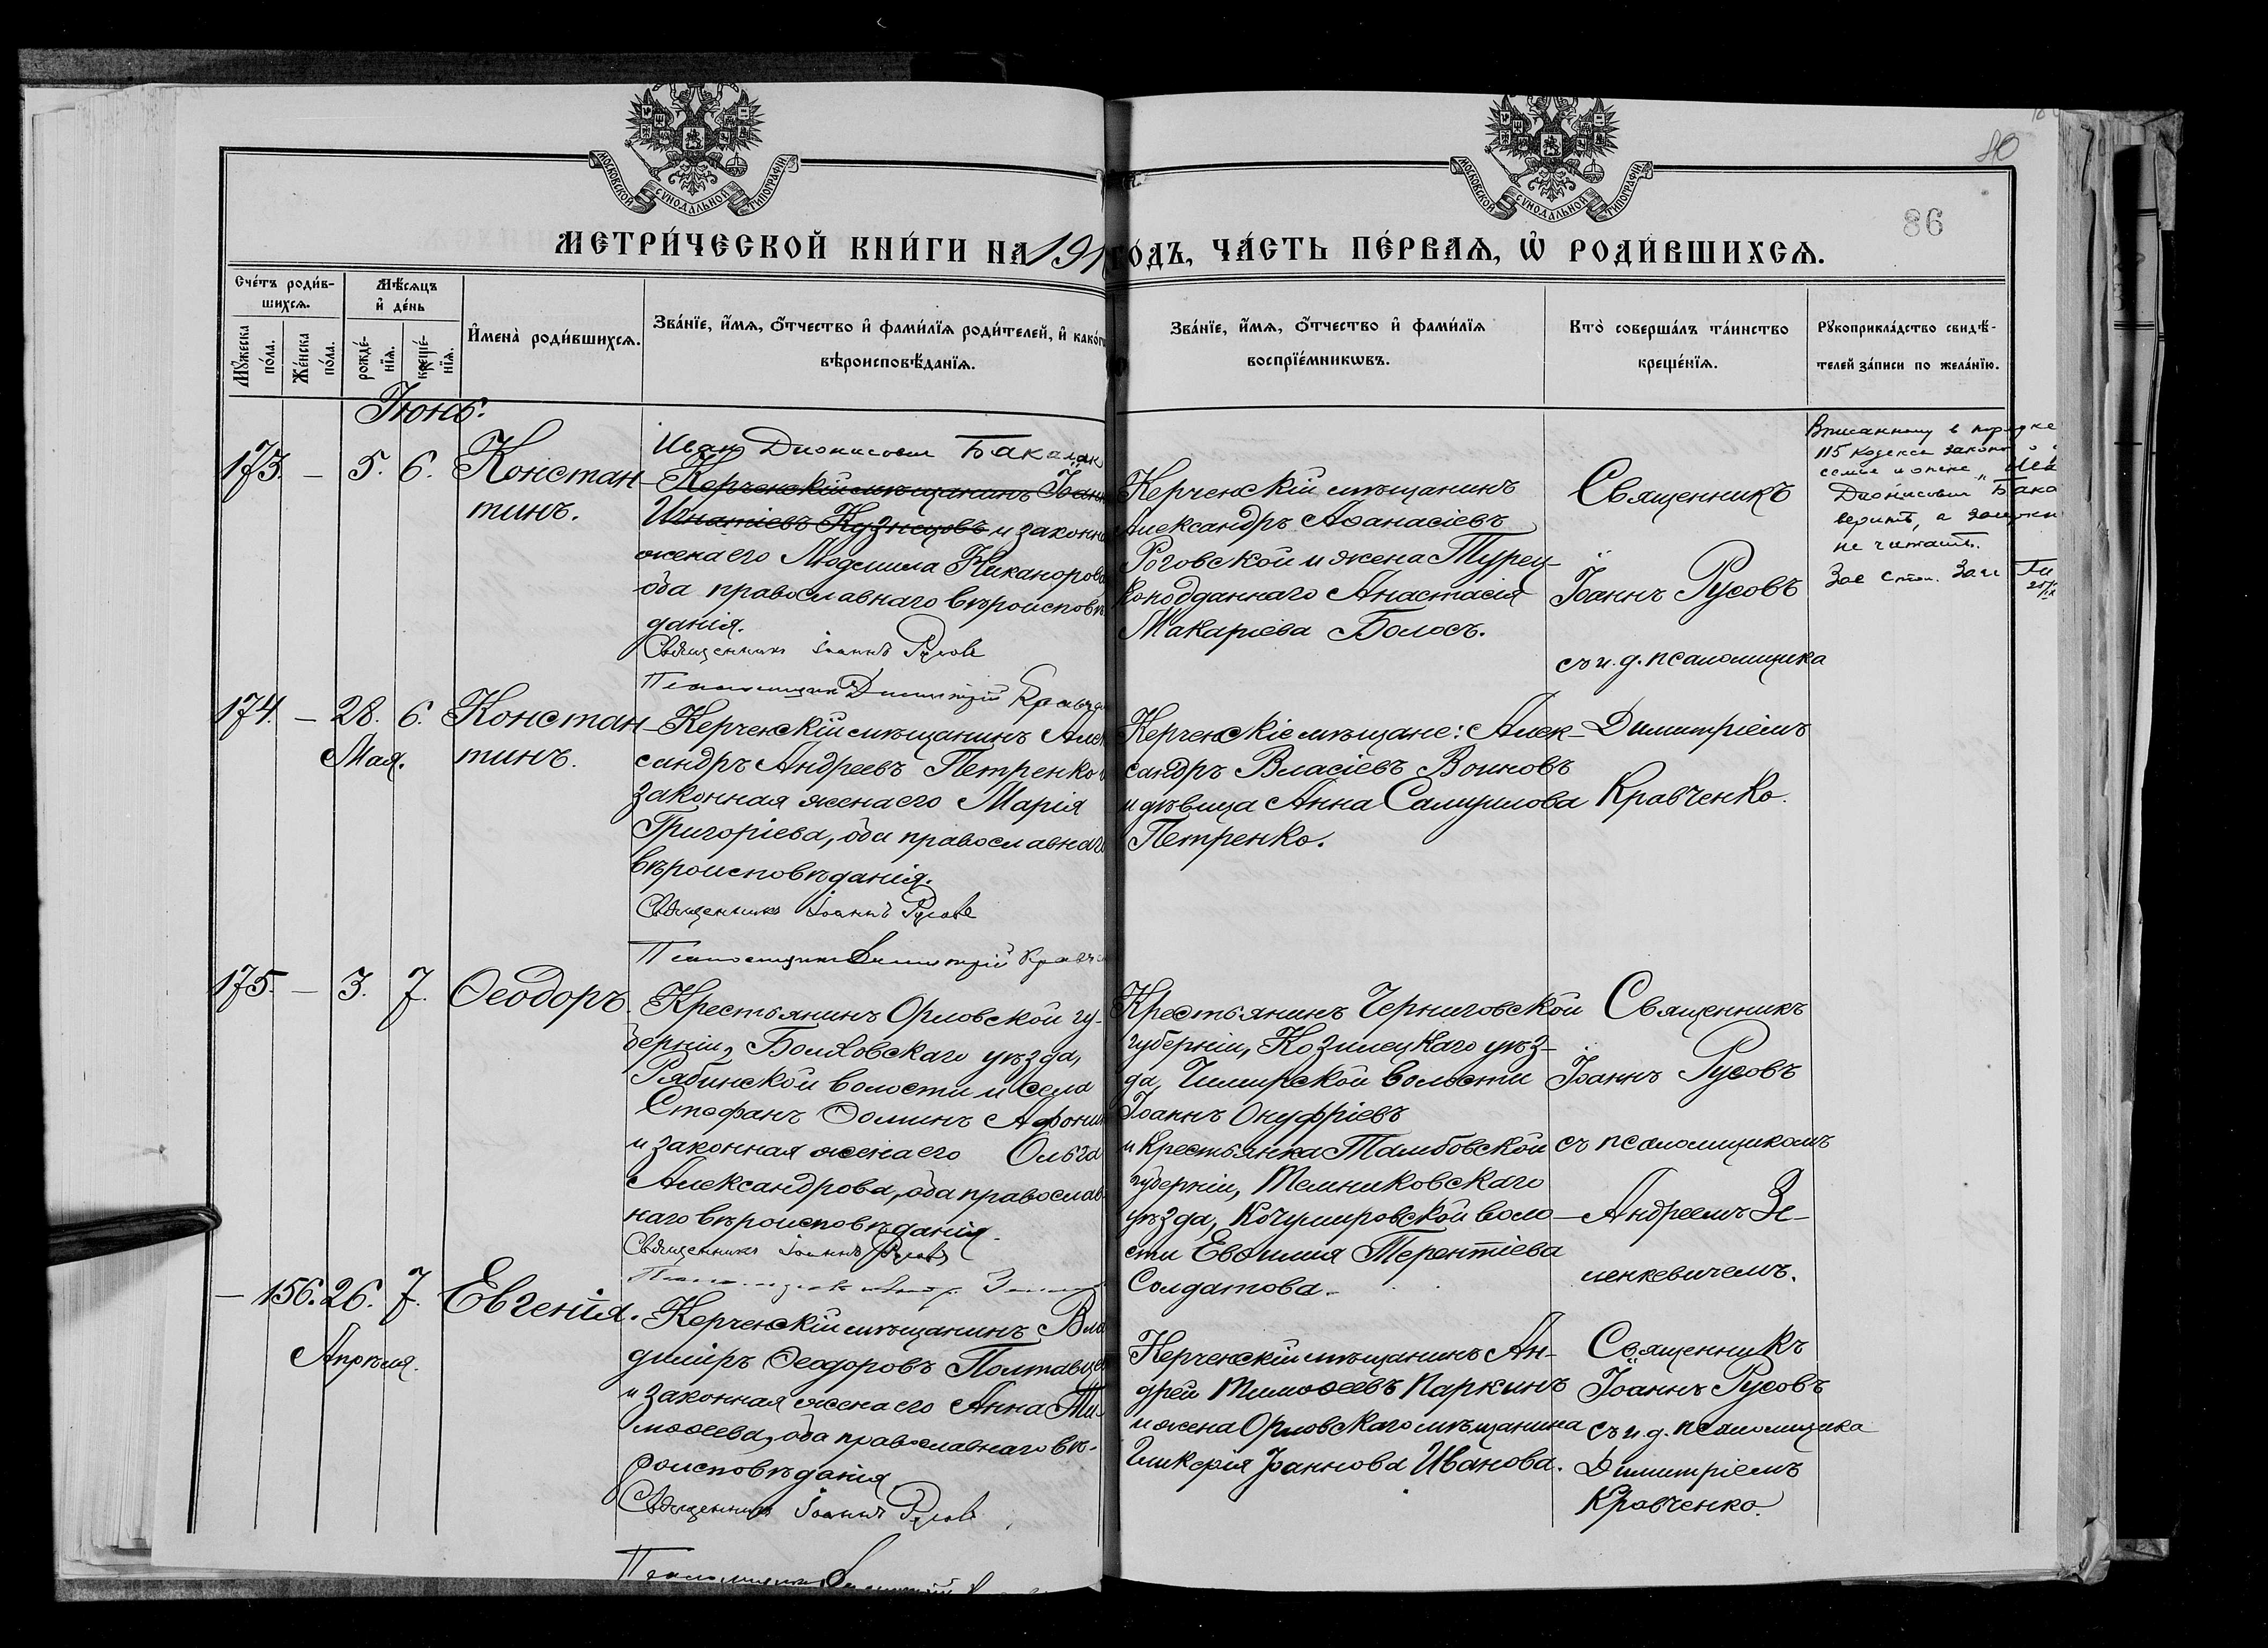 МОСКОВСКОЙ СѴНОДАЛЬНОЙ ТИПОГРАФІИ
МОСКОВСКОЙ СѴНОДАЛЬНОЙ ТИПОГРАФІИ
80
86
МЕТРИ́ЧЕСКОЙ КНИ́ГИ НА 191
ГО́ДЪ, ЧА́СТЬ ПЕ́РВАѦ, Ѡ҆ РОДИ́ВШИХСѦ.
Сче́тъ роди́в-
шихсѧ.
Мꙋ́жеска по́ла.
Же́нска по́ла.
Мѣ́сѧцъ
и҆ де́нь
рожде́-нїѧ.
креще́-нїѧ.
И҆мена̀ роди́вшихсѧ.
Зва́нїе, и҆́мѧ, ѻ҆́тчество и҆ фами́лїѧ роди́телей, и҆ како́гѡ
вѣроисповѣ́данїѧ.
Зва́нїе, и҆́мѧ, ѻ҆́тчество и҆ фами́лїѧ
воспрїе́мникѡвъ.
Кто̀ соверша́лъ та́инство
креще́нїѧ.
Рꙋкоприкла́дство свидѣ́-
телей за́писи по жела́нїю.
Іюнь.
173. — 5. 6. Констан-
тинъ.
Иван Дионисович Бакалан
Керченскій мѣщанинъ Іоаннъ
Игнатіевъ Кузнецовъ и законная
жена его Людмила Никанорова
оба православнаго вѣроисповѣ
данія.
Священникъ Іоаннъ Русовъ
Псаломщикъ Димитрій Кравчен
Керченскій мѣщанинъ
Александръ Аѳанасіевъ
Роговской и жена Турец-
коподданнаго Анастасія
Макаріева Болосъ.
Священникъ
Іоаннъ Русовъ
съ и. д. псаломщика
Вписанному в порядке
115 кодекса законов о
семье и опеке „Ив
Дионисович Бака
верить, а зачеркн
не читать.
Зав стол. Загс
174. — 28. 6. Констан-
Мая. тинъ.
Керченскій мѣщанинъ Алек
сандръ Андреевъ Петренко и
законная жена его Марія
Григоріева, оба православнаго
вѣроисповѣданія.
Священникъ Іоаннъ Русовъ
Псаломщикъ Димитрій Кравчен
Керченскіе мѣщане: Алек-
сандръ Власіевъ Воиновъ
и дѣвица Анна Самуилова
Петренко.
Димитріемъ
Кравченко.
175. — 3. 7. Ѳеодоръ.
Крестьянинъ Орловской гу-
берніи, Болховскаго уѣзда,
Рябинской волости и села
Стефанъ Ѳоминъ Афонин
и законная жена его Ольга
Александрова, оба православ-
наго вѣроисповѣданія.
Священникъ Іоаннъ Русовъ
Крестьянинъ Черниговской
губерніи, Козелецкаго уѣз-
да, Чемерской волости
Іоаннъ Онуфріевъ
и крестьянка Тамбовской
губерніи, Темниковскаго
уѣзда, Кочемировской воло-
сти Евѳимія Терентіева
Солдатова.
Священникъ
Іоаннъ Русовъ
съ псаломщикомъ
Андреемъ Зе-
ленкевичемъ.
— 156. 26. 7. Евгенія.
Апрѣля.
Керченскій мѣщанинъ Вла
диміръ Ѳеодоровъ Полтавце
и законная жена его Анна Ти-
моѳеева, оба православнаго вѣ-
роисповѣданія
Священникъ Іоаннъ Русовъ
Псаломщикъ Димитрій
Керченскій мѣщанинъ Ан-
дрей Тимоѳеевъ Паркинъ
и жена Орловскаго мѣщанина
Гликерія Іоаннова Иванова.
Священникъ
Іоаннъ Русовъ
съ и. д. псаломщика
Димитріемъ
Кравченко.